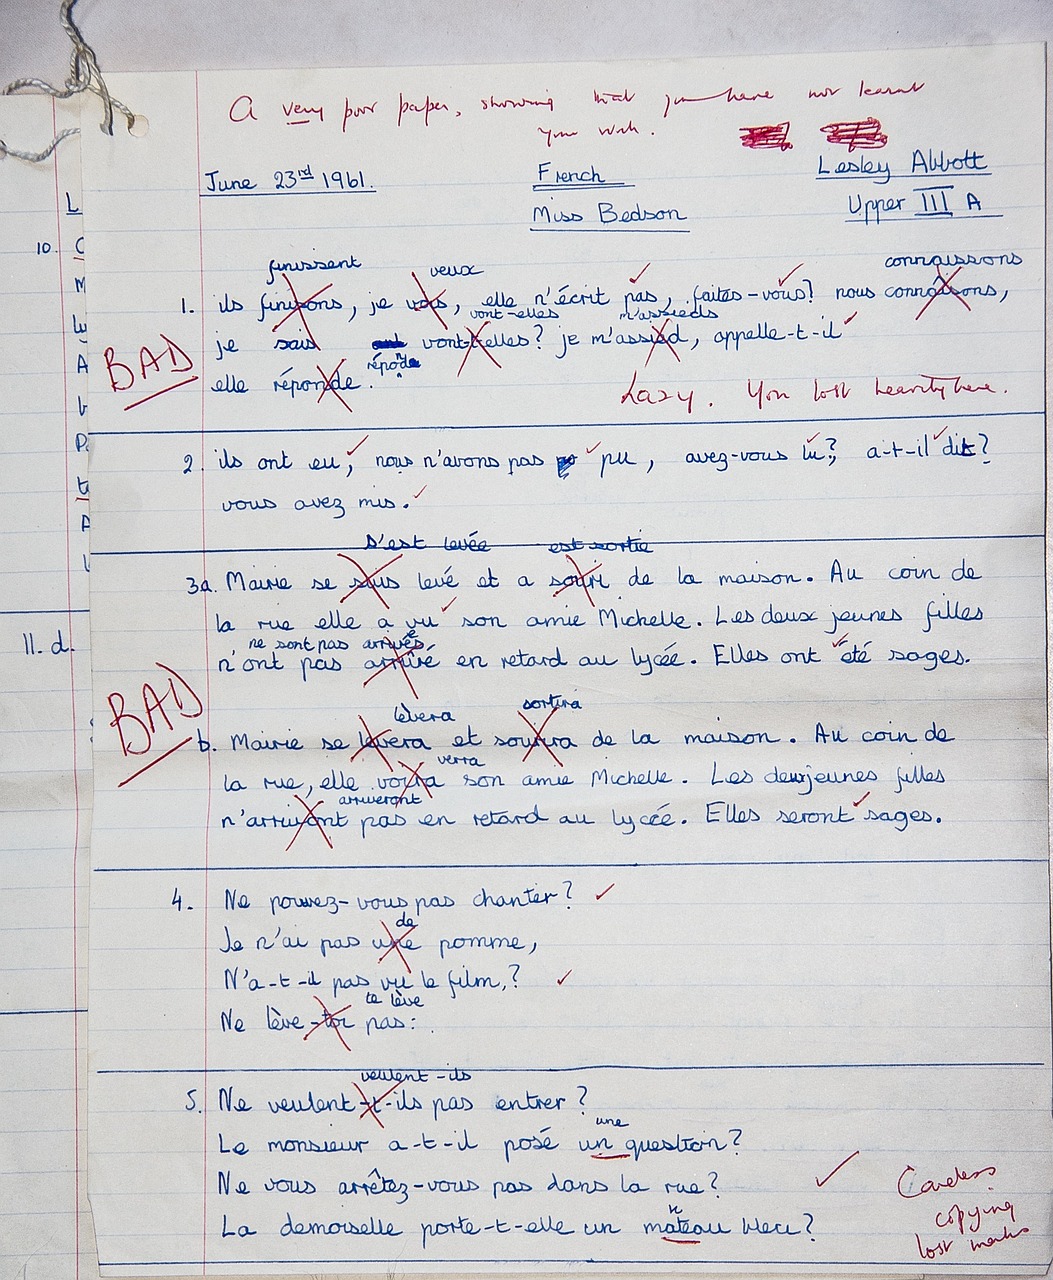 A very poor paper, showing that you have not learnt
your work.
June 23rd 1961.
French
Lesley Abbott
Miss Bedson
Upper III A
L
10.
C
M
A
finissent
veux
connaissons
1. ils finisons, je vois, elle n'écrit pas, faites-vous? nous connaisons,
vont-elles
m'assieds
BAD
je sais vont-elles? je m'assied, appelle-t-il
réponde
elle réponde.
Lazy. You lost heavily here.
2. ils ont eu, nous n'avons pas pu, avez-vous lu?, a-t-il dit?
vous avez mis.
s'est levée
est sortie
3a. Mairie se levé et a de la maison. Au coin de
la rue elle a vu son amie Michelle. Les deux jeunes filles
ne sont pas arrivées
n'ont pas arrivé en retard au lycée. Elles ont été sages.
11. d.
BAD
lèvera
sortira
b. Mairie se levera et de la maison. Au coin de
verra
la rue, elle voira son amie Michelle. Les deux jeunes filles
arriveront
n'arrivont pas en retard au lycée. Elles seront sages.
4. Ne pouvez-vous pas chanter?
de
Je n'ai pas une pomme,
N'a-t-il pas vu le film,?
te lève
Ne lève-toi pas:
veulent-ils
5. Ne veulent-t-ils pas entrer?
une
Le monsieur a-t-il posé un question?
Ne vous arrêtez-vous pas dans la rue?
n
La demoiselle porte-t-elle un mateau bleu?
Careless
copying
lost marks